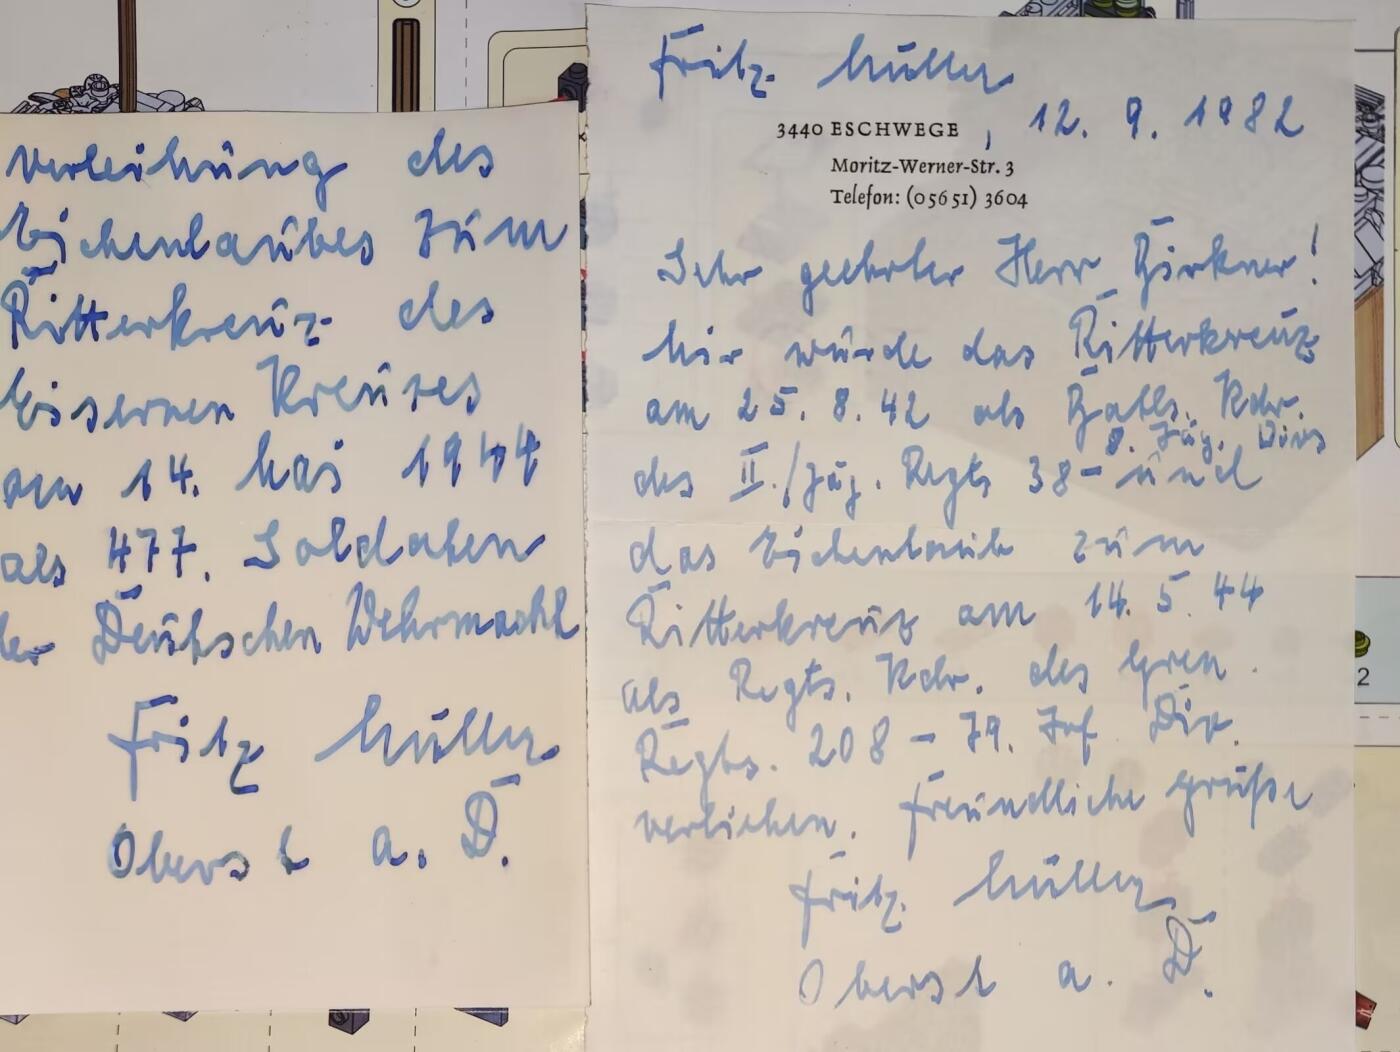 Verleihung des
Eichenlaubes zum
Ritterkreuz des
Eisernen Kreuzes
am 14. Mai 1944
als 477. Soldaten
der Deutschen Wehrmacht
Fritz Müller
Oberst a. D.
Fritz Müller
3440 ESCHWEGE , 12. 9. 1982
Moritz-Werner-Str. 3
Telefon: (05651) 3604
Sehr geehrter Herr Birkner!
Mir wurde das Ritterkreuz
am 25. 8. 42 als Batls. Kdr.
8. Jäg. Divs
des II./Jäg. Regts 38 - und
das Eichenlaub zum
Ritterkreuz am 14. 5. 44
als Regts. Kdr. des Gren.
Regts. 208 - 79. Inf Div.
verliehen. Freundliche Grüße
Fritz Müller
Oberst a. D.
2